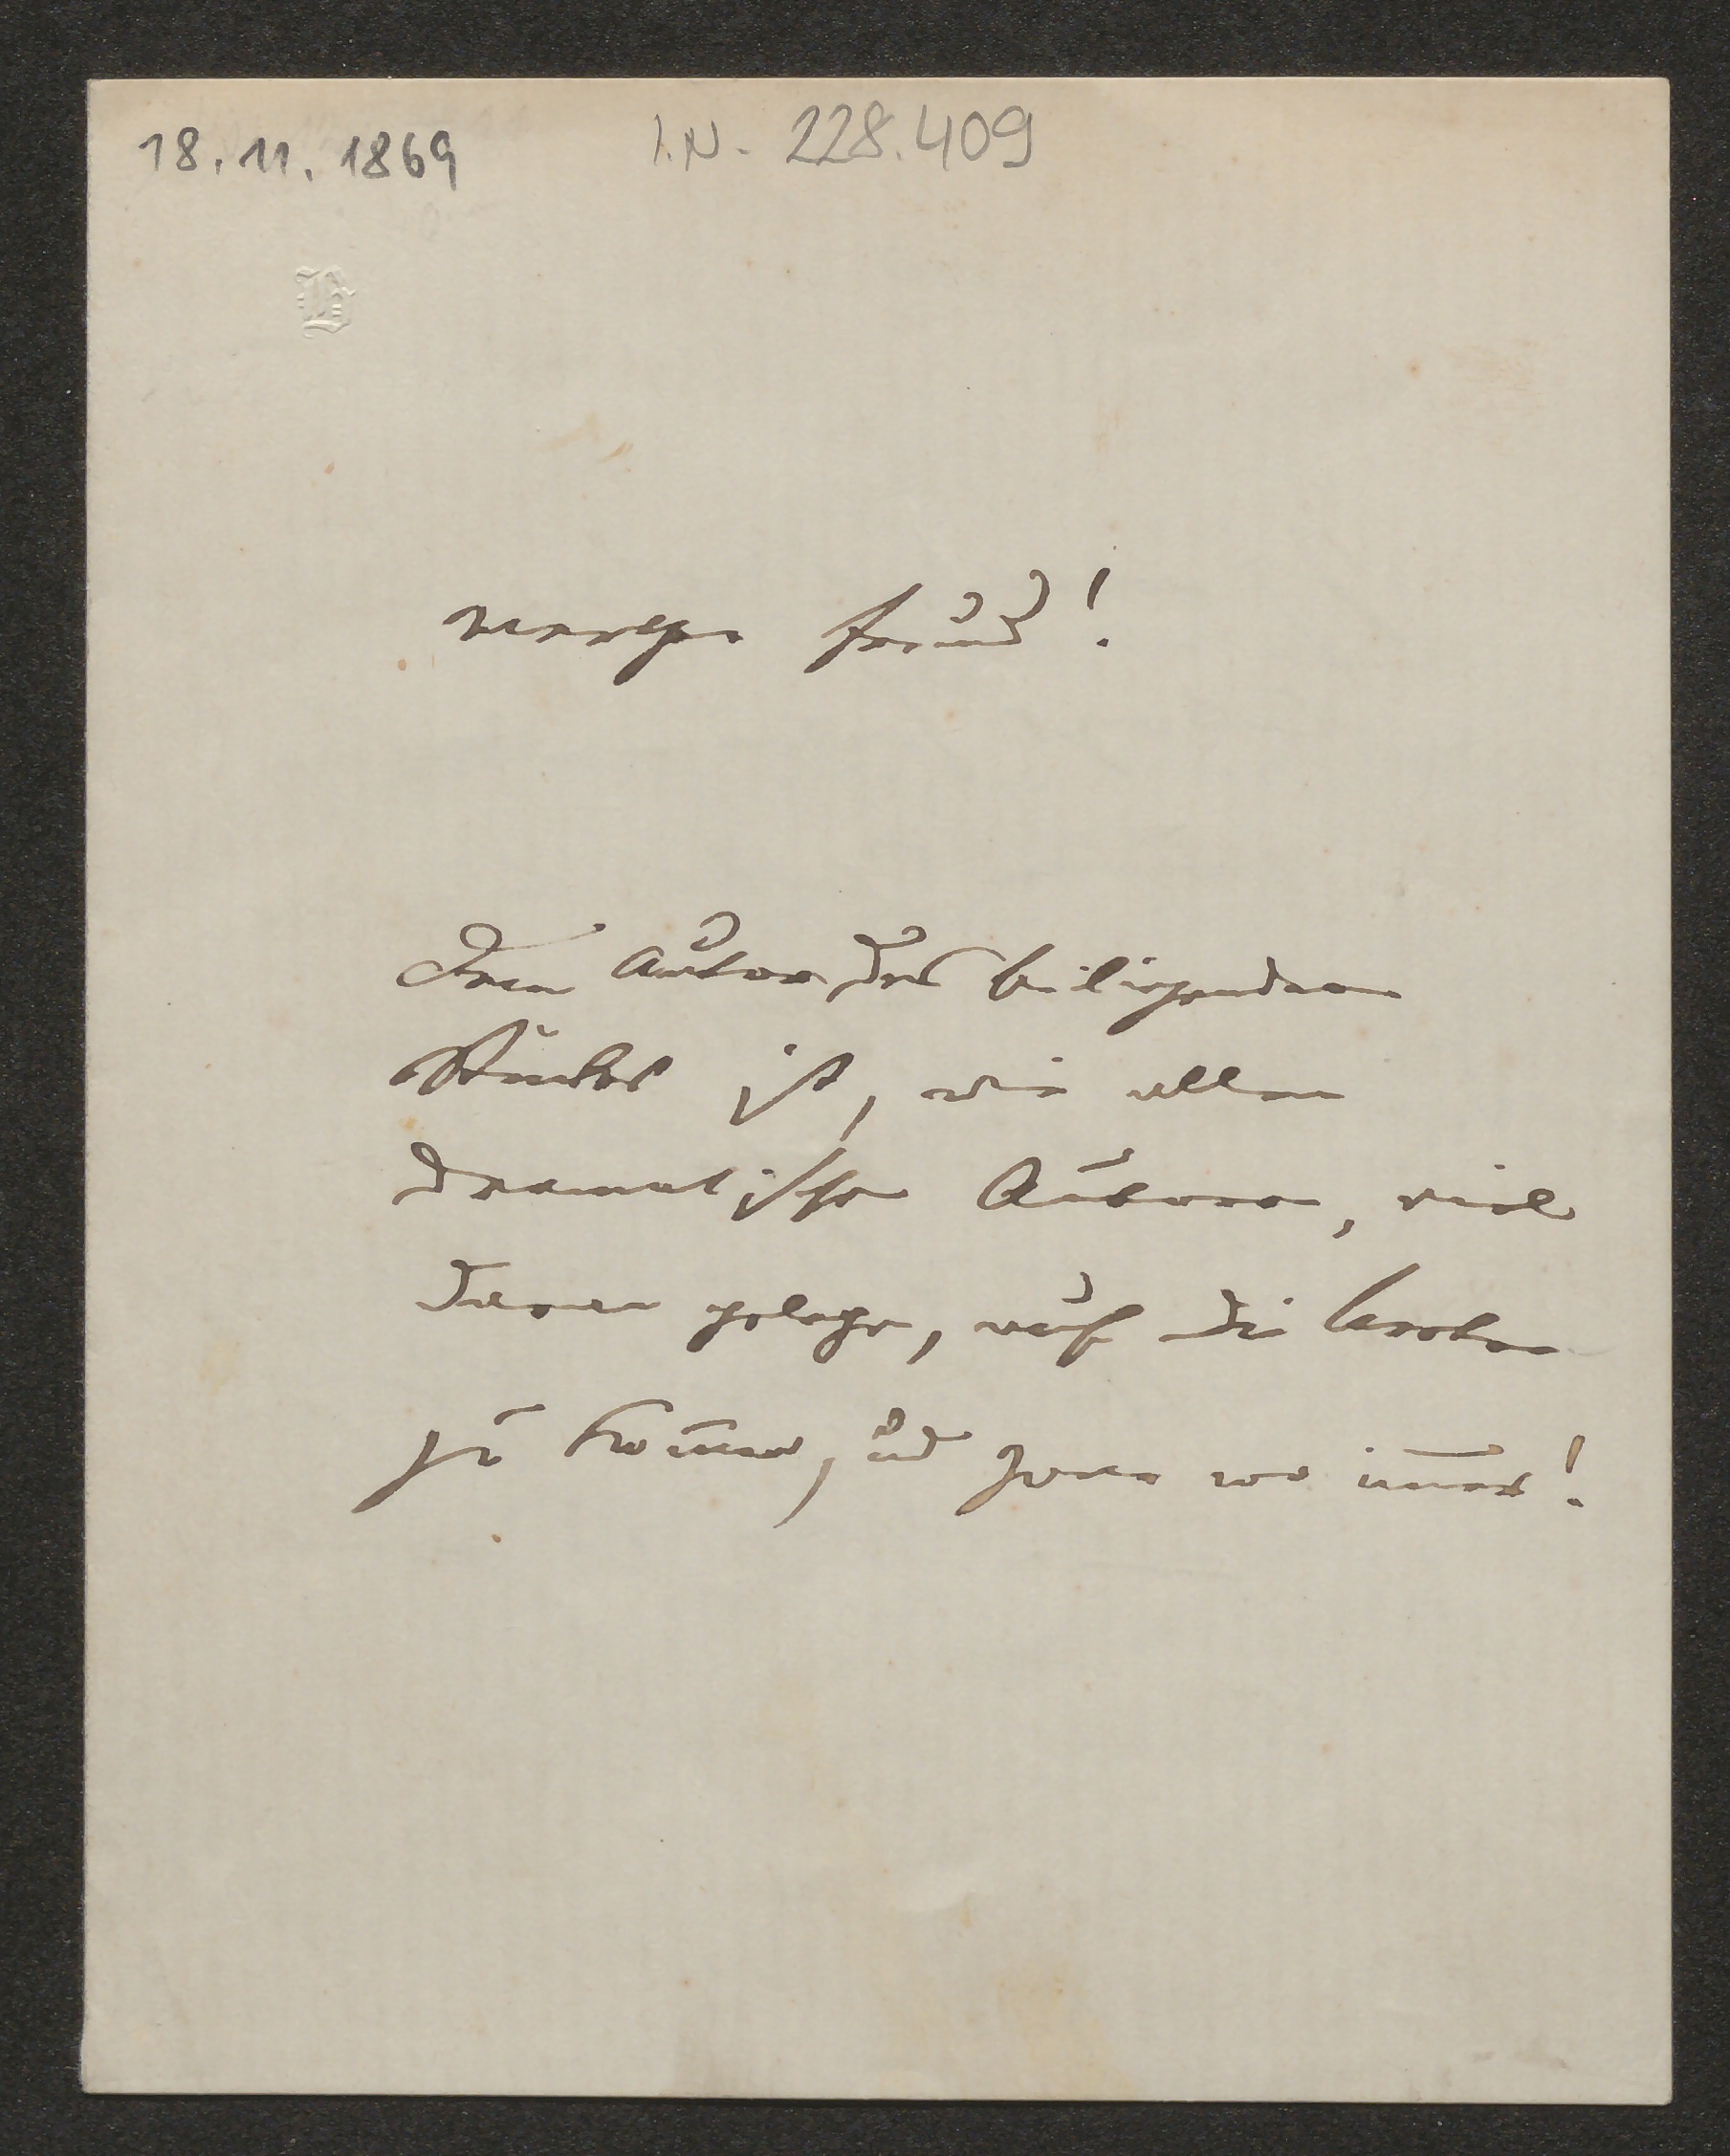 18. 11. 1869
I.N. 228.409
B
Verehrter Freund!
Dem Autor des beiliegenden
Stückes ist, wie allen
dramatischen Autoren, viel
daran gelegen, auf die Breter
zu kommen, und zwar wo immer!